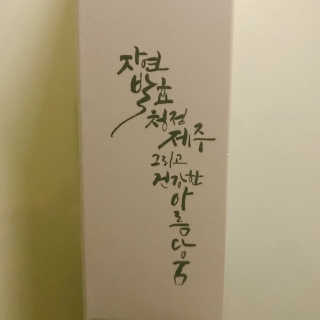 자연
발효
청정
제주
그리고
건강한
아
름
다
움